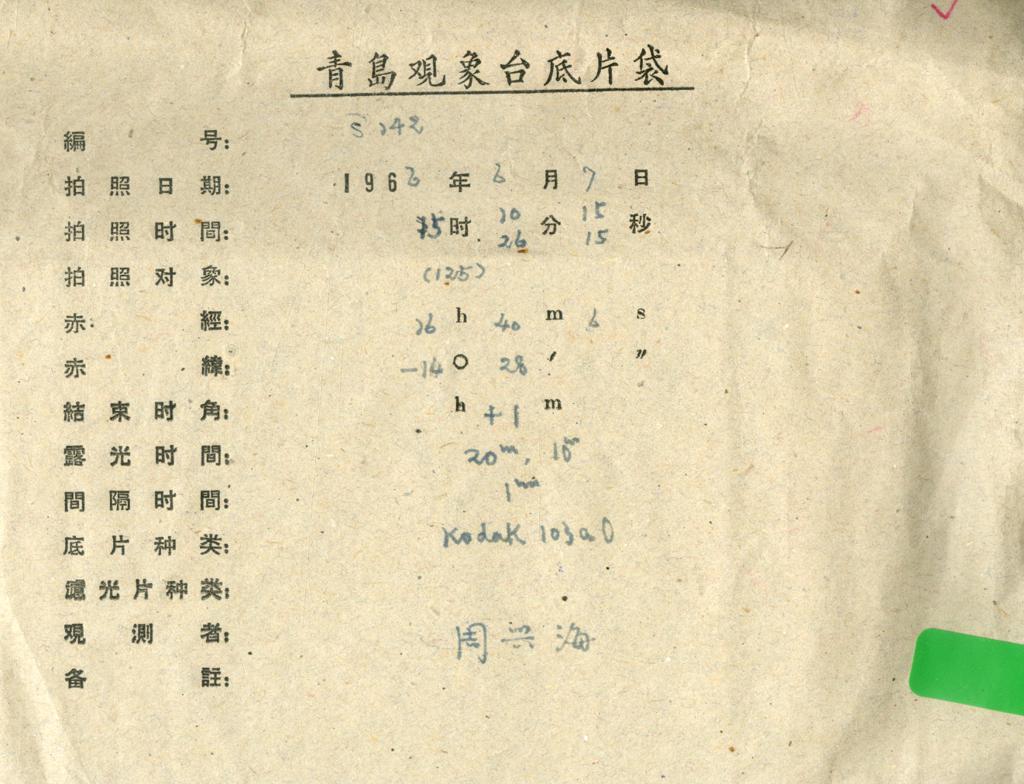 青島观象台底片袋
編号: S342
拍照日期: 1966年6月7日
拍照时間: 15时 10分 15秒
26 15
拍照对象: (125)
赤經: 16h 40m 6s
赤緯: -14° 28′ ″
結束时角: h +1 m
露光时間: 20m, 15m
間隔时間: 1min
底片种类: Kodak 103aO
濾光片种类:
观測者: 周兴海
备註: